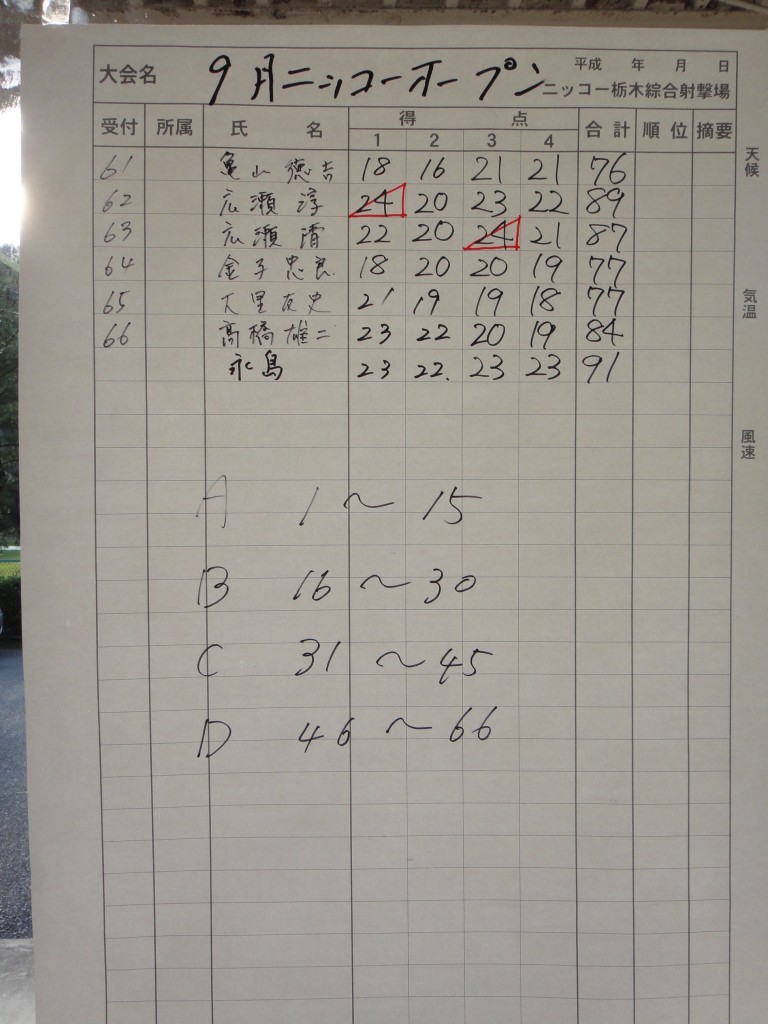 大会名 9月ニッコーオープン 平成 年 月 日
ニッコー栃木綜合射撃場
受付 所属 氏 名 得 点 合計 順位 摘要
1 2 3 4
61 亀山 徳吉 18 16 21 21 76
62 広瀬 淳 24 20 23 22 89
63 広瀬 清 22 20 24 21 87
64 金子忠良 18 20 20 19 77
65 大里友史 21 19 19 18 77
66 高橋雄二 23 22 20 19 84
永島 23 22. 23 23 91
A 1 〜 15
B 16 〜 30
C 31 〜 45
D 46 〜 66
天候
気温
風速